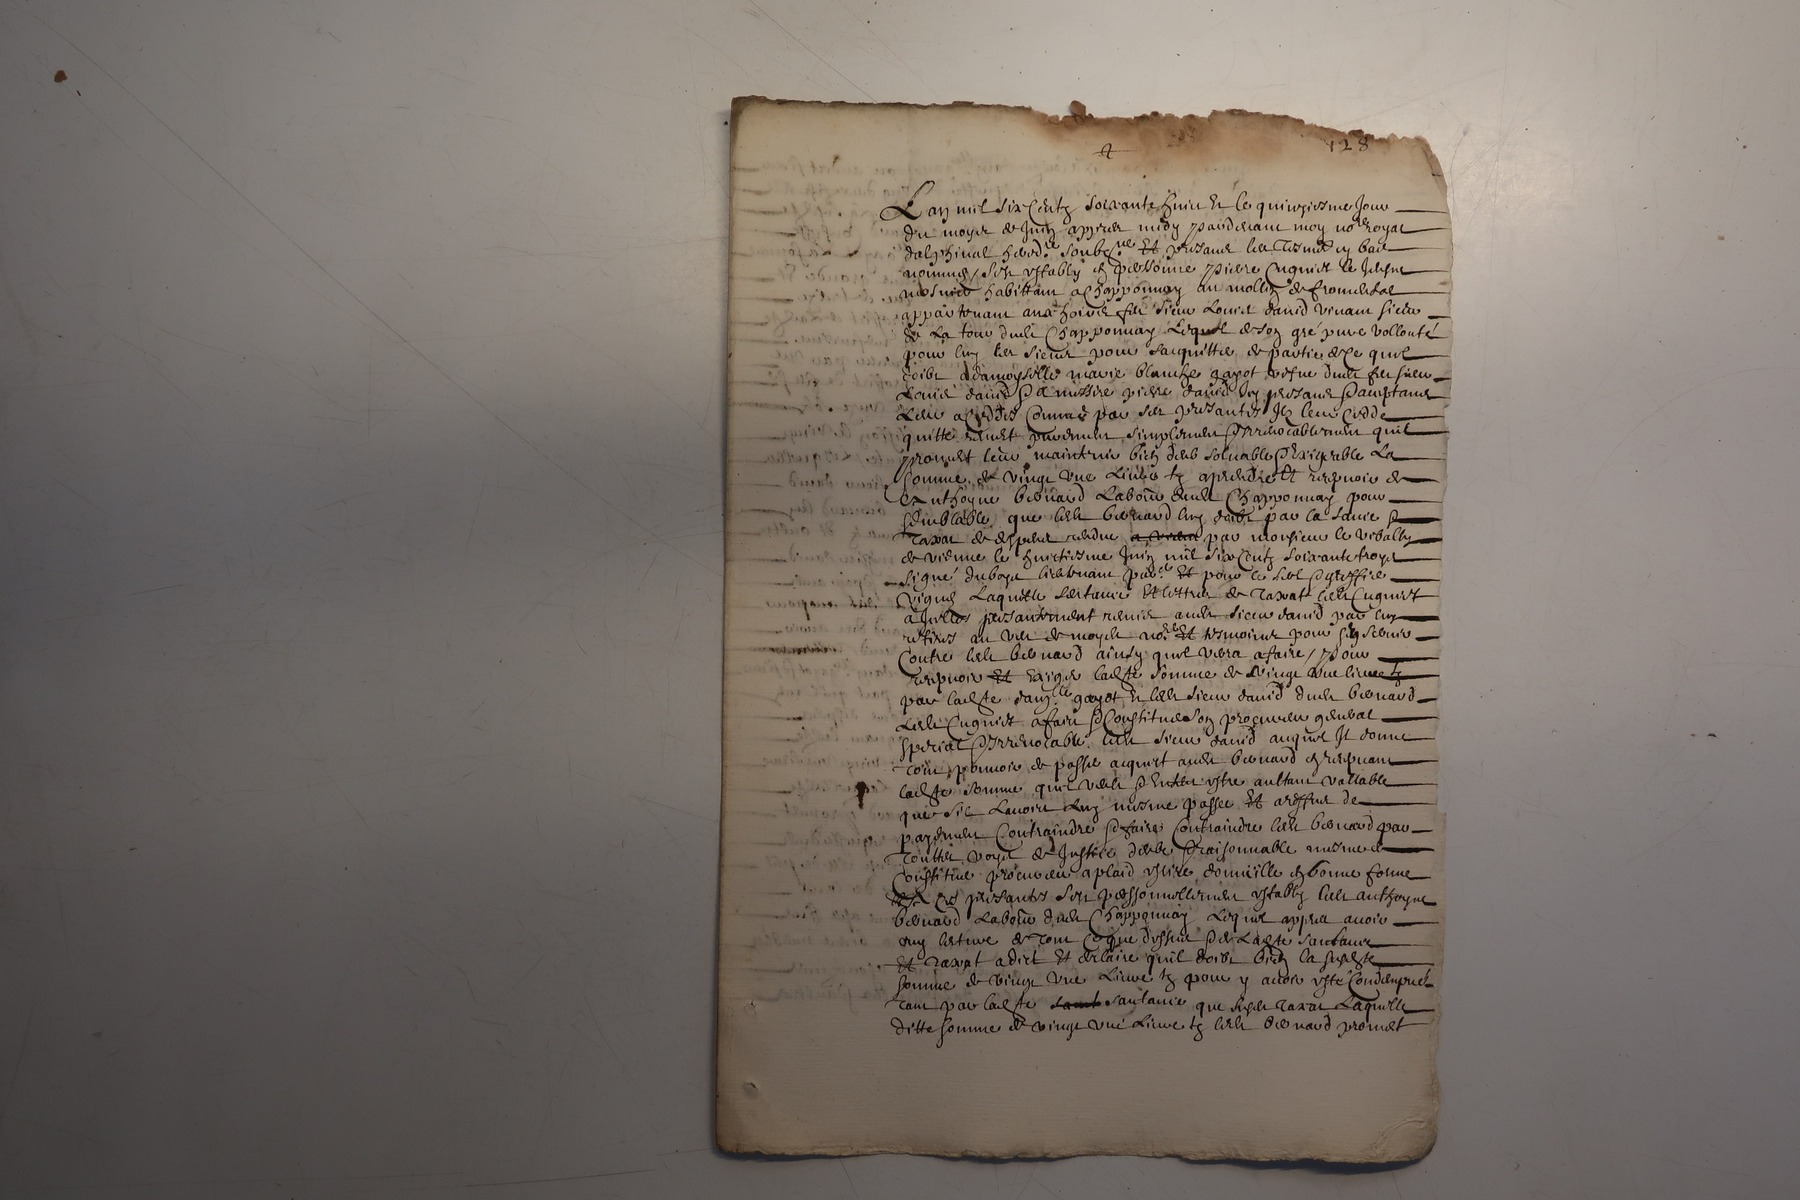 128
Lan mil six Centz soixante huict et le quinziesme Jour
du moys de Juin appres midy pardevant moy no.re royal
dalphinal hered.re soubz.ne et presans les tesmoins bas
nommés / s'est estably en personne pierre Cuguiet le Jeusne
mosnier habittant a Chapponnay au mollin de
appartenant aux hoirs feu sieur Louis david vivant sieur
de La tour dudit Chapponnay Lequel de son gré pure vollonté
pour luy les siens pour sacquitter de partie de Ce quil
doibt a damoyselle marie blanche gayot vefve dudit feu sieur
Louis david et a messire pierre david Icy presans et aceptans
Leur a Ceddé Comme par ses presantes Il leur Cedde
quitte remet purement simplement et Irrevocablement quil
promet leur maintenir bien deub solvable et Exigeable La
somme de vingt une Livre tz a prendre et recepvoir de
Anthoyne bernard Laboureur dudit Chapponnay pour
semblable que ledit bernard luy doibt par la sentence et
taxat de despens rendue par monsieur le vibally
de vienne le huictiesme Juin mil six Centz soixante troys
signé duboys lieutenant par.er et pour le seel et greffier
Laquelle sentance et lettres de taxat ledit Cuguiet
a Juelles presantement remis audit sieur david par luy
retirés au veu de moydit no.re et tesmoins pour sen servir
Contre ledit bernard ainsy quil verra a faire / pour
recepvoir et exiger ladite somme de vingt une livre tz
par ladite dam.lle gayot et ledit sieur david dudit bernard
Ledit Cuguiet a faict et Constitué son procureur general
special et Irrevocable ledit sieur david auquel Il donne
tout pouvoir de passer acquict audit bernard en recepvant
ladite somme quil veult et Entend estre aultant vallable
que sil Lavoict Luy mesme passé et a deffaut de
payement Contraindre et faire Contraindre ledit bernard par
touttes voyes de Justice deubes et raisonnable mesme
Constitue procureur a plaid eslire domicille en bonne forme
A Ces presantes s'est personnellement estably ledit anthoyne
bernard Laboureur dudit Chapponnay Lequel appres avoir
ouy lecture de tout Ce que dessus et de Ladite santance
et taxat a dict et declaire quil doibt bien la susdite
somme de vingt une Livre tz pour y avoir esté Condempné
tant par ladite santance que susdit taxat Laquelle
ditte somme de vingt une Livre tz ledit bernard promet